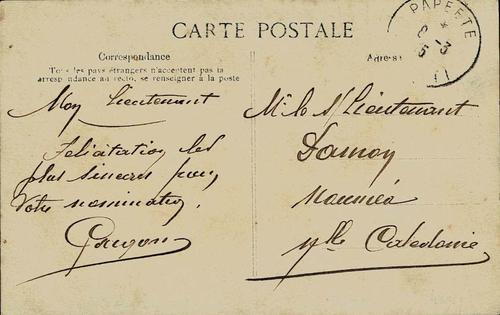 CARTE POSTALE
PAPEETE
Correspondance
Tous les pays étrangers n'acceptent pas la
correspondance au recto, se renseigner à la poste
Adresse
Mon Lieutenant
Félicitations les
plus sincères pour
Votre nomination.
Mr le s/Lieutenant
Nouméa
Nlle Calédonie